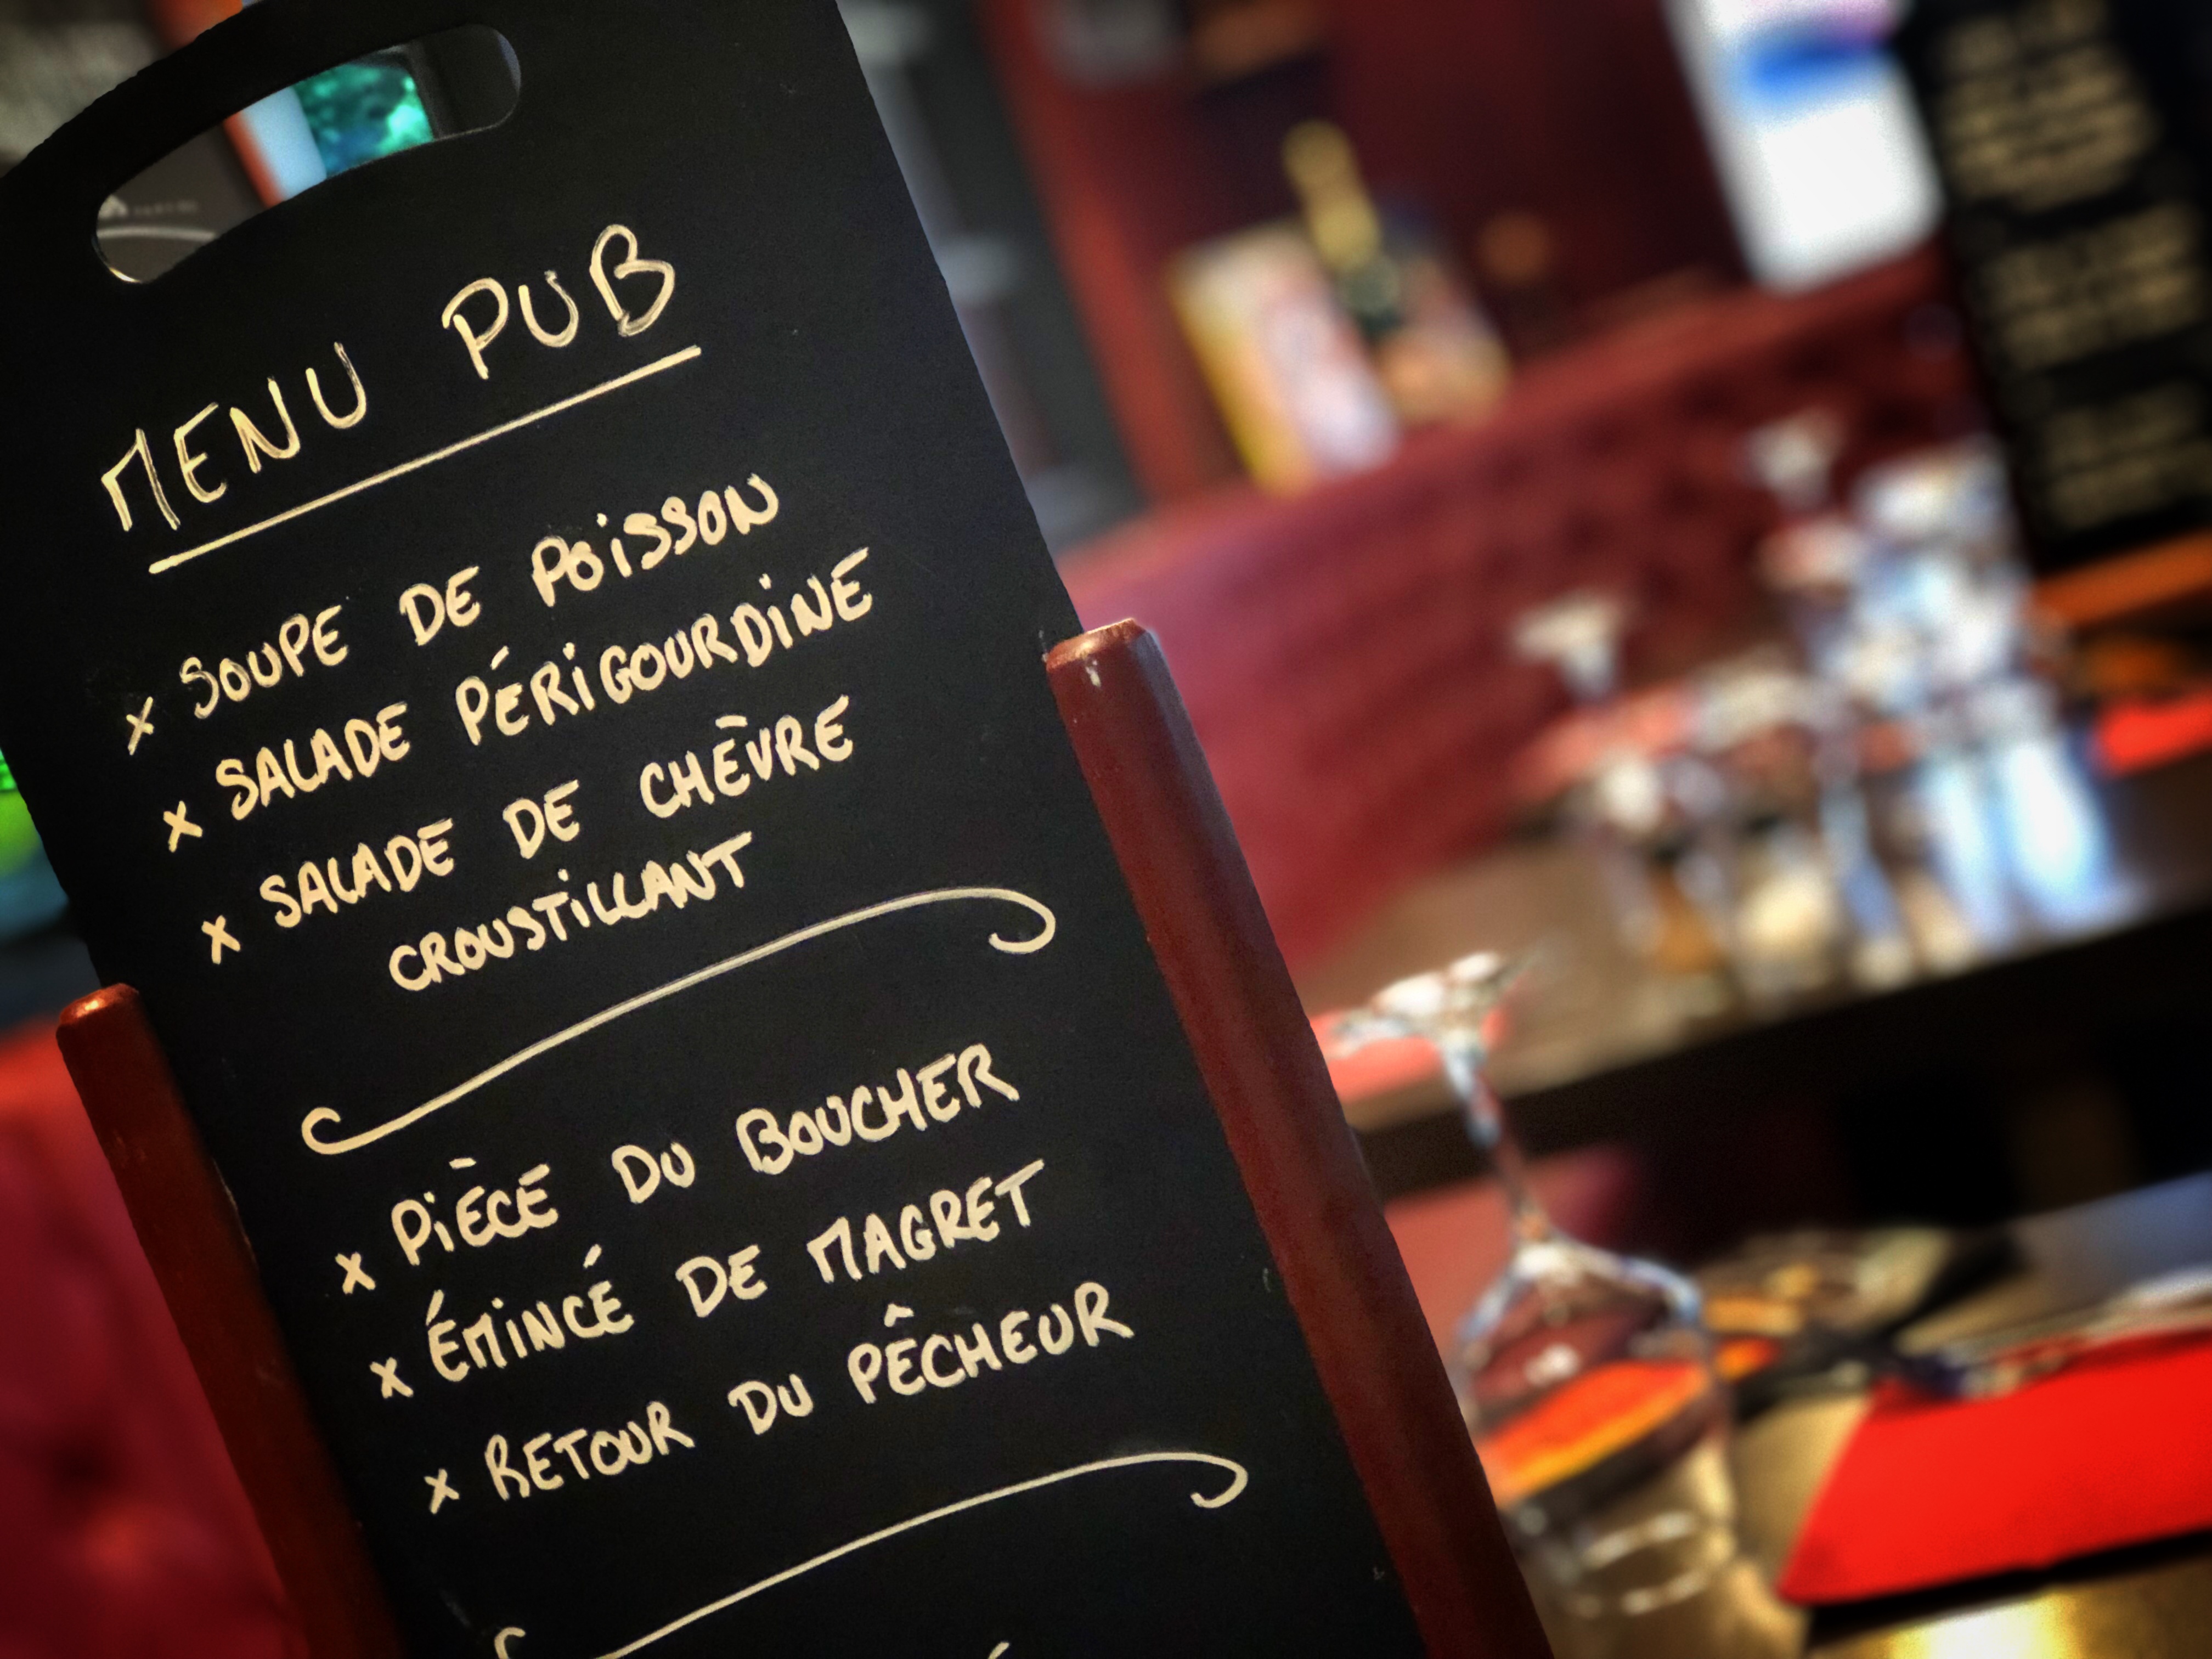 MENU PUB
x SOUPE DE POISSON
x SALADE PÉRIGOURDINE
x SALADE DE CHÈVRE
CROUSTILLANT
x PIÈCE DU BOUCHER
x ÉMINCÉ DE MAGRET
x RETOUR DU PÊCHEUR